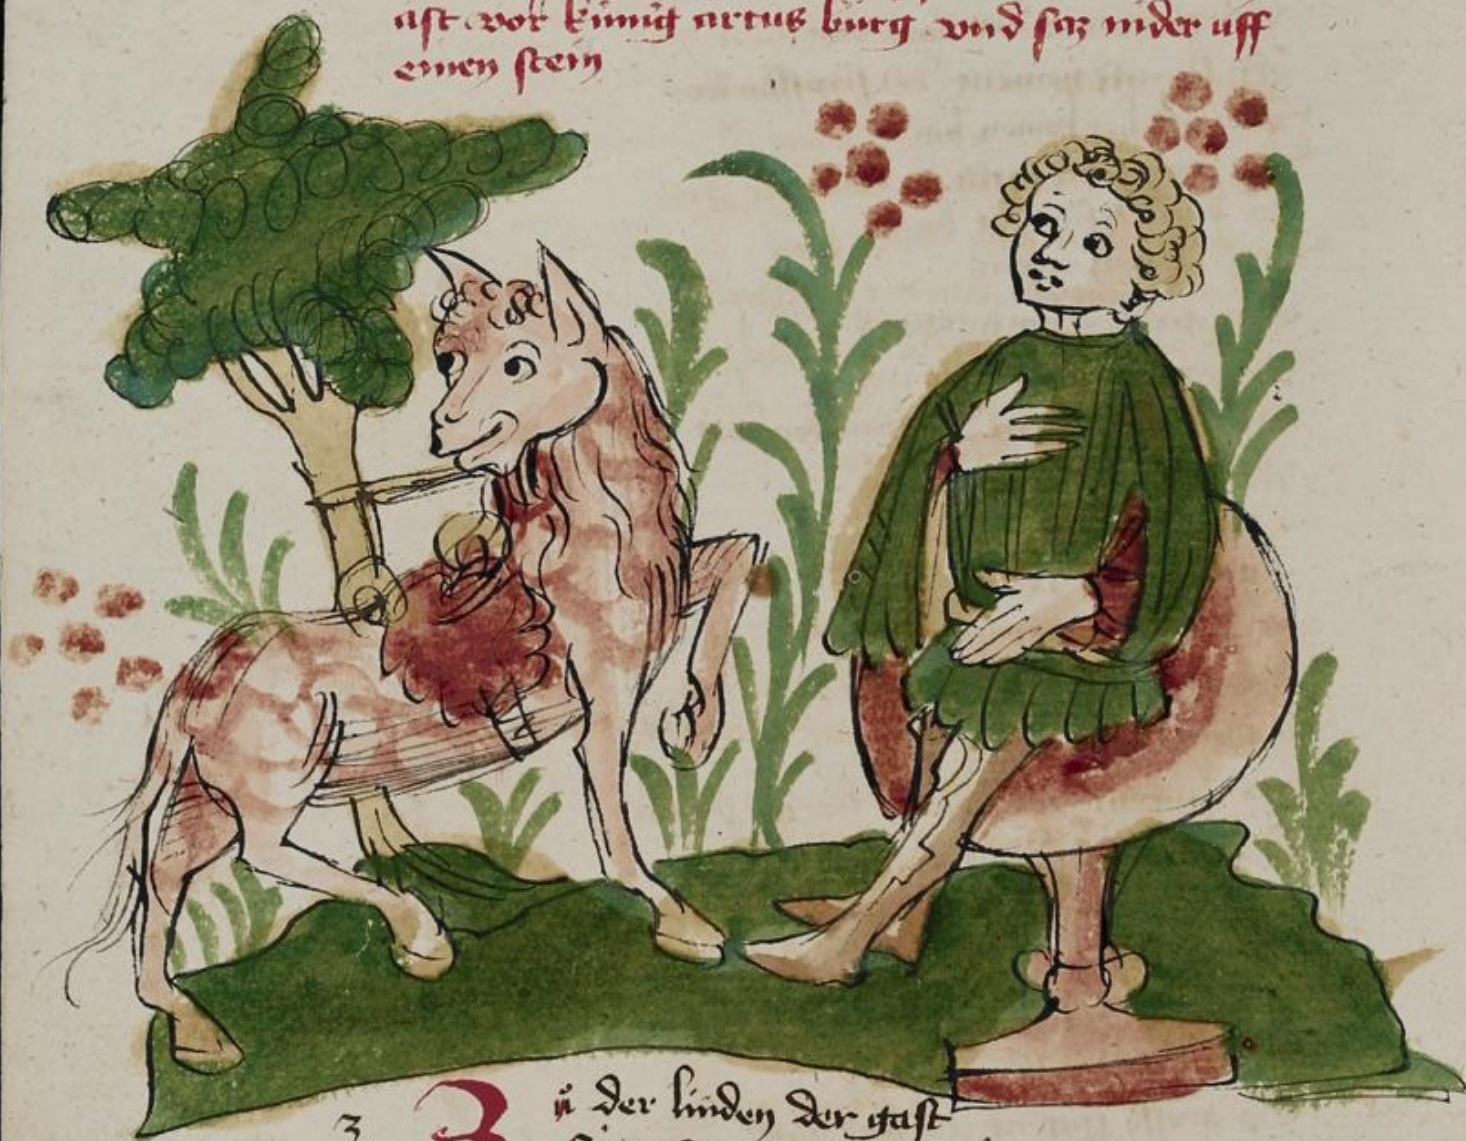 ast vor kúnig artus burg vnd saz nider uff
einen stein
3 Zů der linden der gast